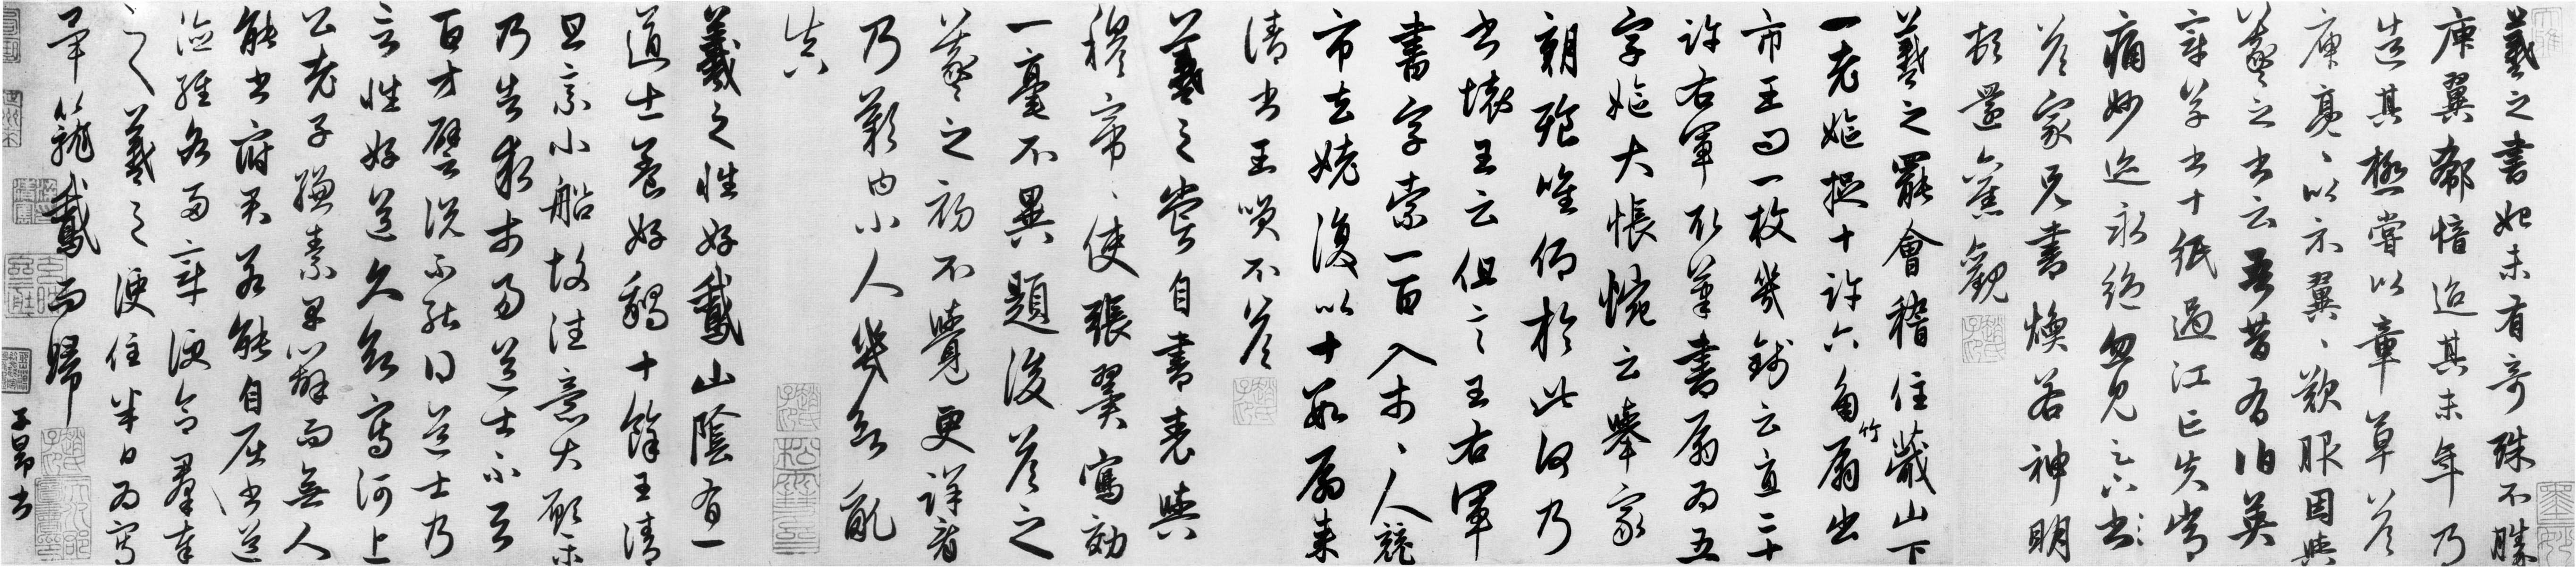 羲之書始未有奇殊不勝
庾翼郗愔迨其末年乃
造其極嘗以章草答
庾亮亮以示翼翼歎服因與
羲之書云吾昔有伯英
章草書十紙過江亡失常
痛妙迹永絕忽見足下
答家兄書煥若神明
頓還舊觀
羲之罷會稽住蕺山下
一老嫗捉十許六角竹扇出
市王問一枚幾錢云直二十
許右軍取筆書扇扇為五
字嫗大悵惋云舉家
朝飡唯仰於此何乃
書壞王云但言王右軍
書字索一百入市市人競
市去嫗復以十數扇來
請書王笑不答
羲之嘗自書表與
穆帝帝使張翼寫效
一毫不異題後答之
羲之初不覺更詳看
乃歎曰小人幾欲亂
真
羲之性好鵞山陰有一
道士養好鵝十餘王清
旦乘小船故往意大願樂
乃告求市易道士不與
百方譬說不能得道士乃
言性好道久欲寫河上
公老子縑素早辦而無人
能書府君若能自屈書道
德經各兩章便合羣奉
之羲之便住半日為寫
畢籠鵞而歸
子昂書